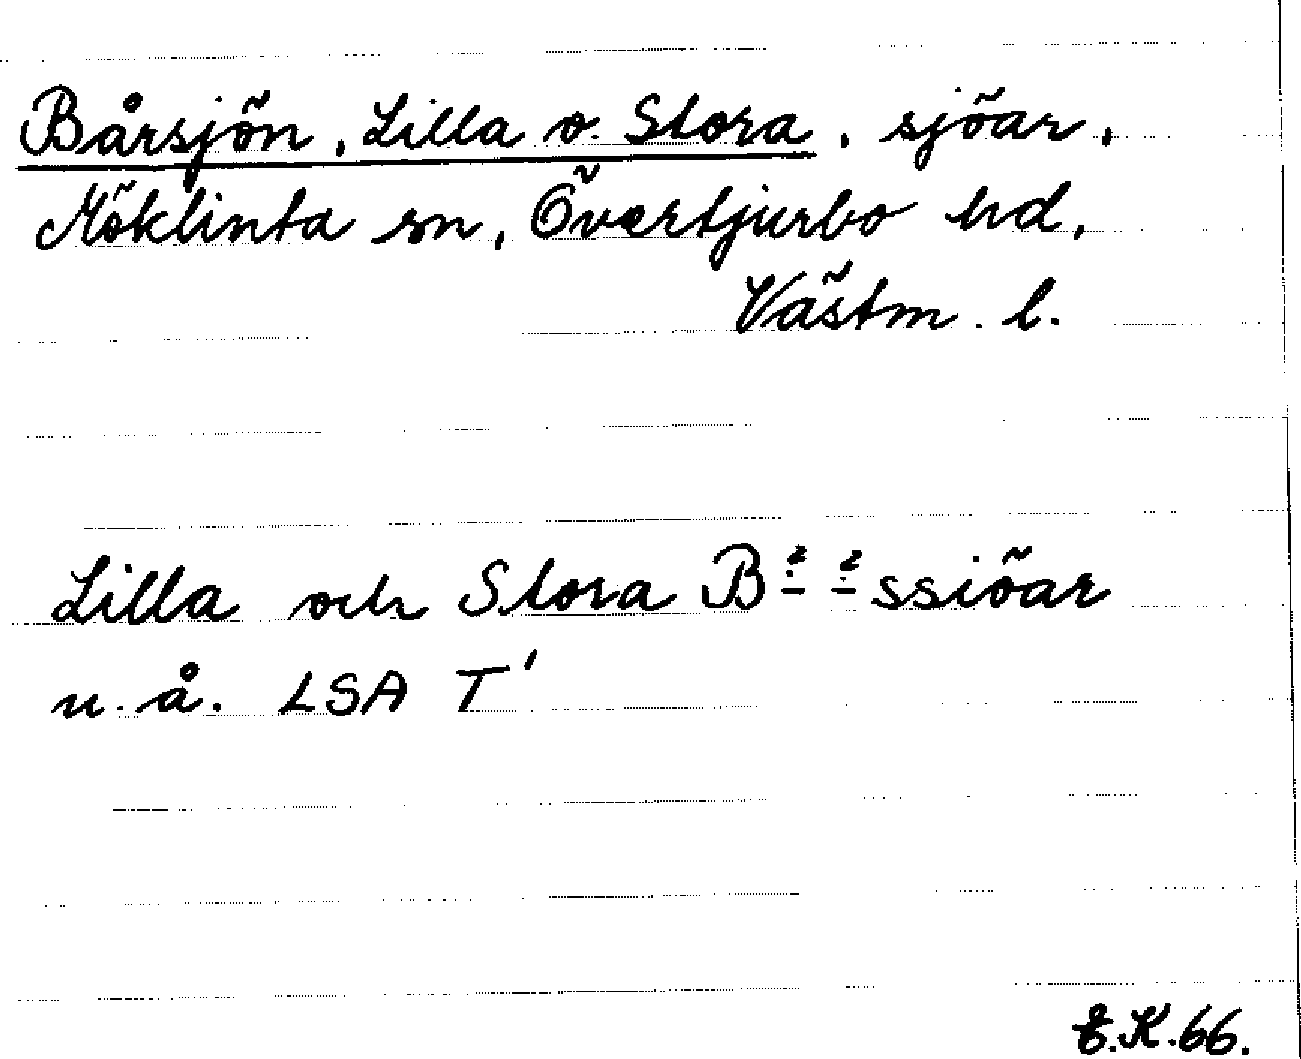 Bårsjön, Lilla o. Stora, sjöar,
Möklinta sn, Övertjurbo hd,
Västm. l.
Lilla och Stora B⸗⸗ssiöar
u.å. LSA T'
E.K.66.